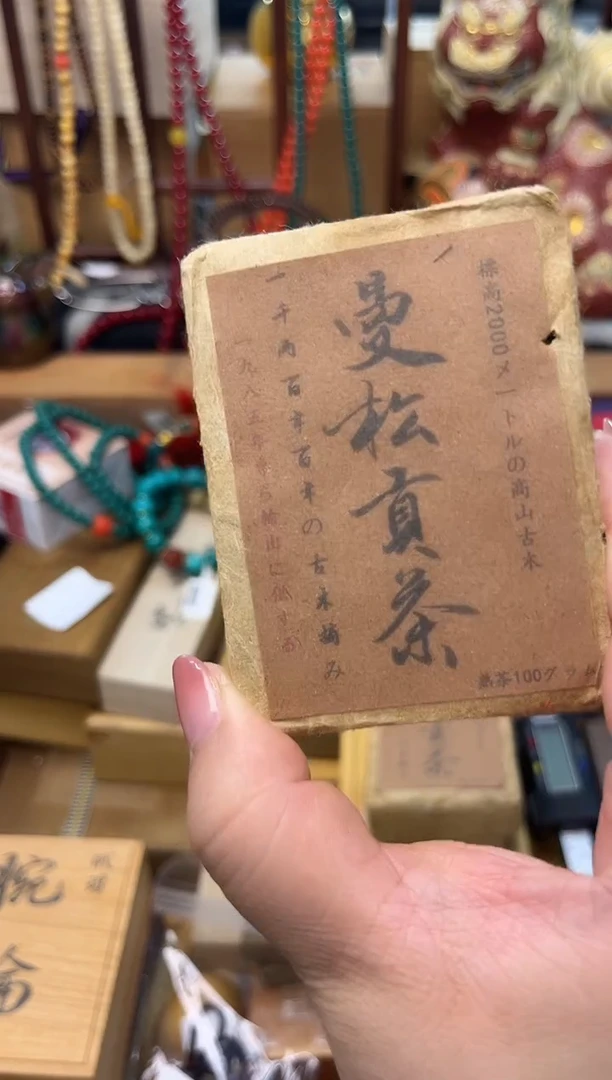 標高2000メートルの高山古木
曼松貢茶
一千両百年百年の古木摘み
一九八五年から輸出に伝する
熟茶100グラム